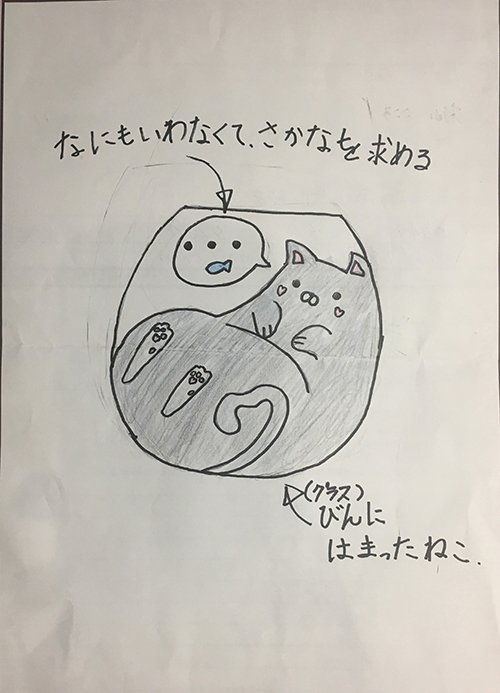 なにもいわなくて、さかなを求める
(グラス)
びんに
はまったねこ.